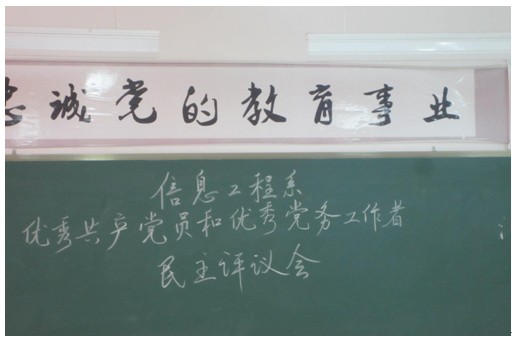 忠诚党的教育事业
信息工程系
优秀共产党员和优秀党务工作者
民主评议会